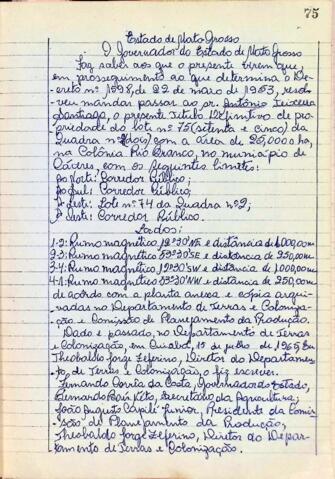 75
Estado de Mato Grosso
O Governador do Estado de Mato Grosso
Faz saber aos que o presente virem que,
em prosseguimento ao que determina o De-
creto nº 1598, de 22 de maio de 1953, resol-
veu mandar passar ao sr. Antônio Teixeira
Santiago, o presente Titulo Definitivo de pro-
priedade do lote nº 75 (setenta e cinco) da
Quadra nº 2 (dois) com a área de 25,000 ha,
na Colônia Rio Branco, no município de
Cáceres, com os seguintes limites:
Ao Norte: Corredor Público;
Ao Sul: Corredor Público;
A Leste: Lote nº 74 da Quadra nº 2;
A Oeste: Corredor Público.
Lados:
1-2: Rumo magnético 12º30'NE e distância de 1.000,00m
2-3: Rumo magnético 53º30'SE e distância de 250,00m
3-4: Rumo magnético 12º30'SW e distância de 1.000,00m
4-1: Rumo magnético 53º30'NW e distância de 250,00m
de acordo com a planta anexa e copia arqui-
vadas no Departamento de Terras e Coloniza-
ção e Comissão de Planejamento da Produção.
Dado e passado, no Departamento de Terras
e Colonização, em Cuiabá, 12 de julho de 1965. Eu
Theobaldo Jorge Zeferino, Diretor do Departamen-
to, de Terras e Colonização, o fiz escrever.
Fernando Corrêa da Costa, Governador do Estado,
Bernardo Bais Neto, Secretário da Agricultura;
João Augusto Capilé Junior, Presidente da Comis-
são de Planejamento da Produção,
Theobaldo Jorge Zeferino, Diretor do Depar-
tamento de Terras e Colonização.